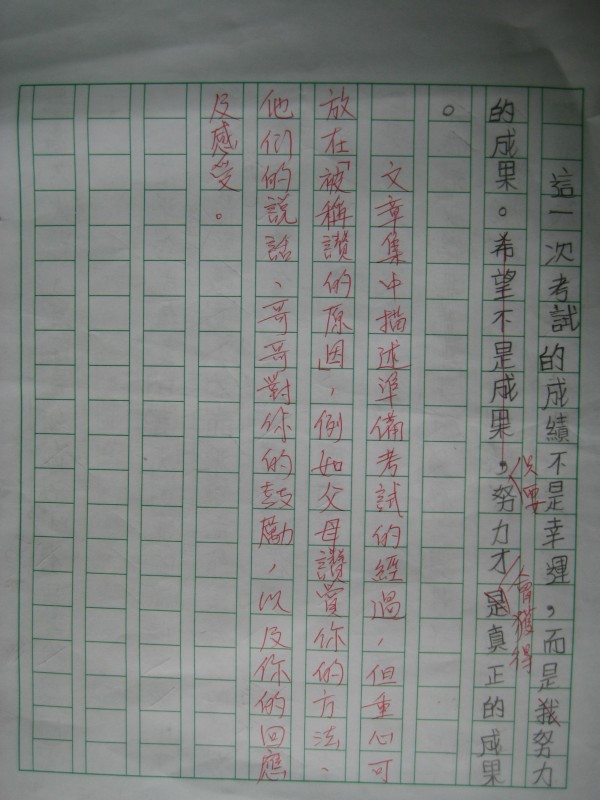 這一次考試的成績不是幸運，而是我努力
的成果。希望不是成果，努力才是真正的成果
要
會獲得
。
文章集中描述準備考試的經過，但重心可
放在「被稱讚的原因」，例如父母讚賞你的方法、
他们的說話、哥哥對你的鼓勵，以及你的回應
及感受。